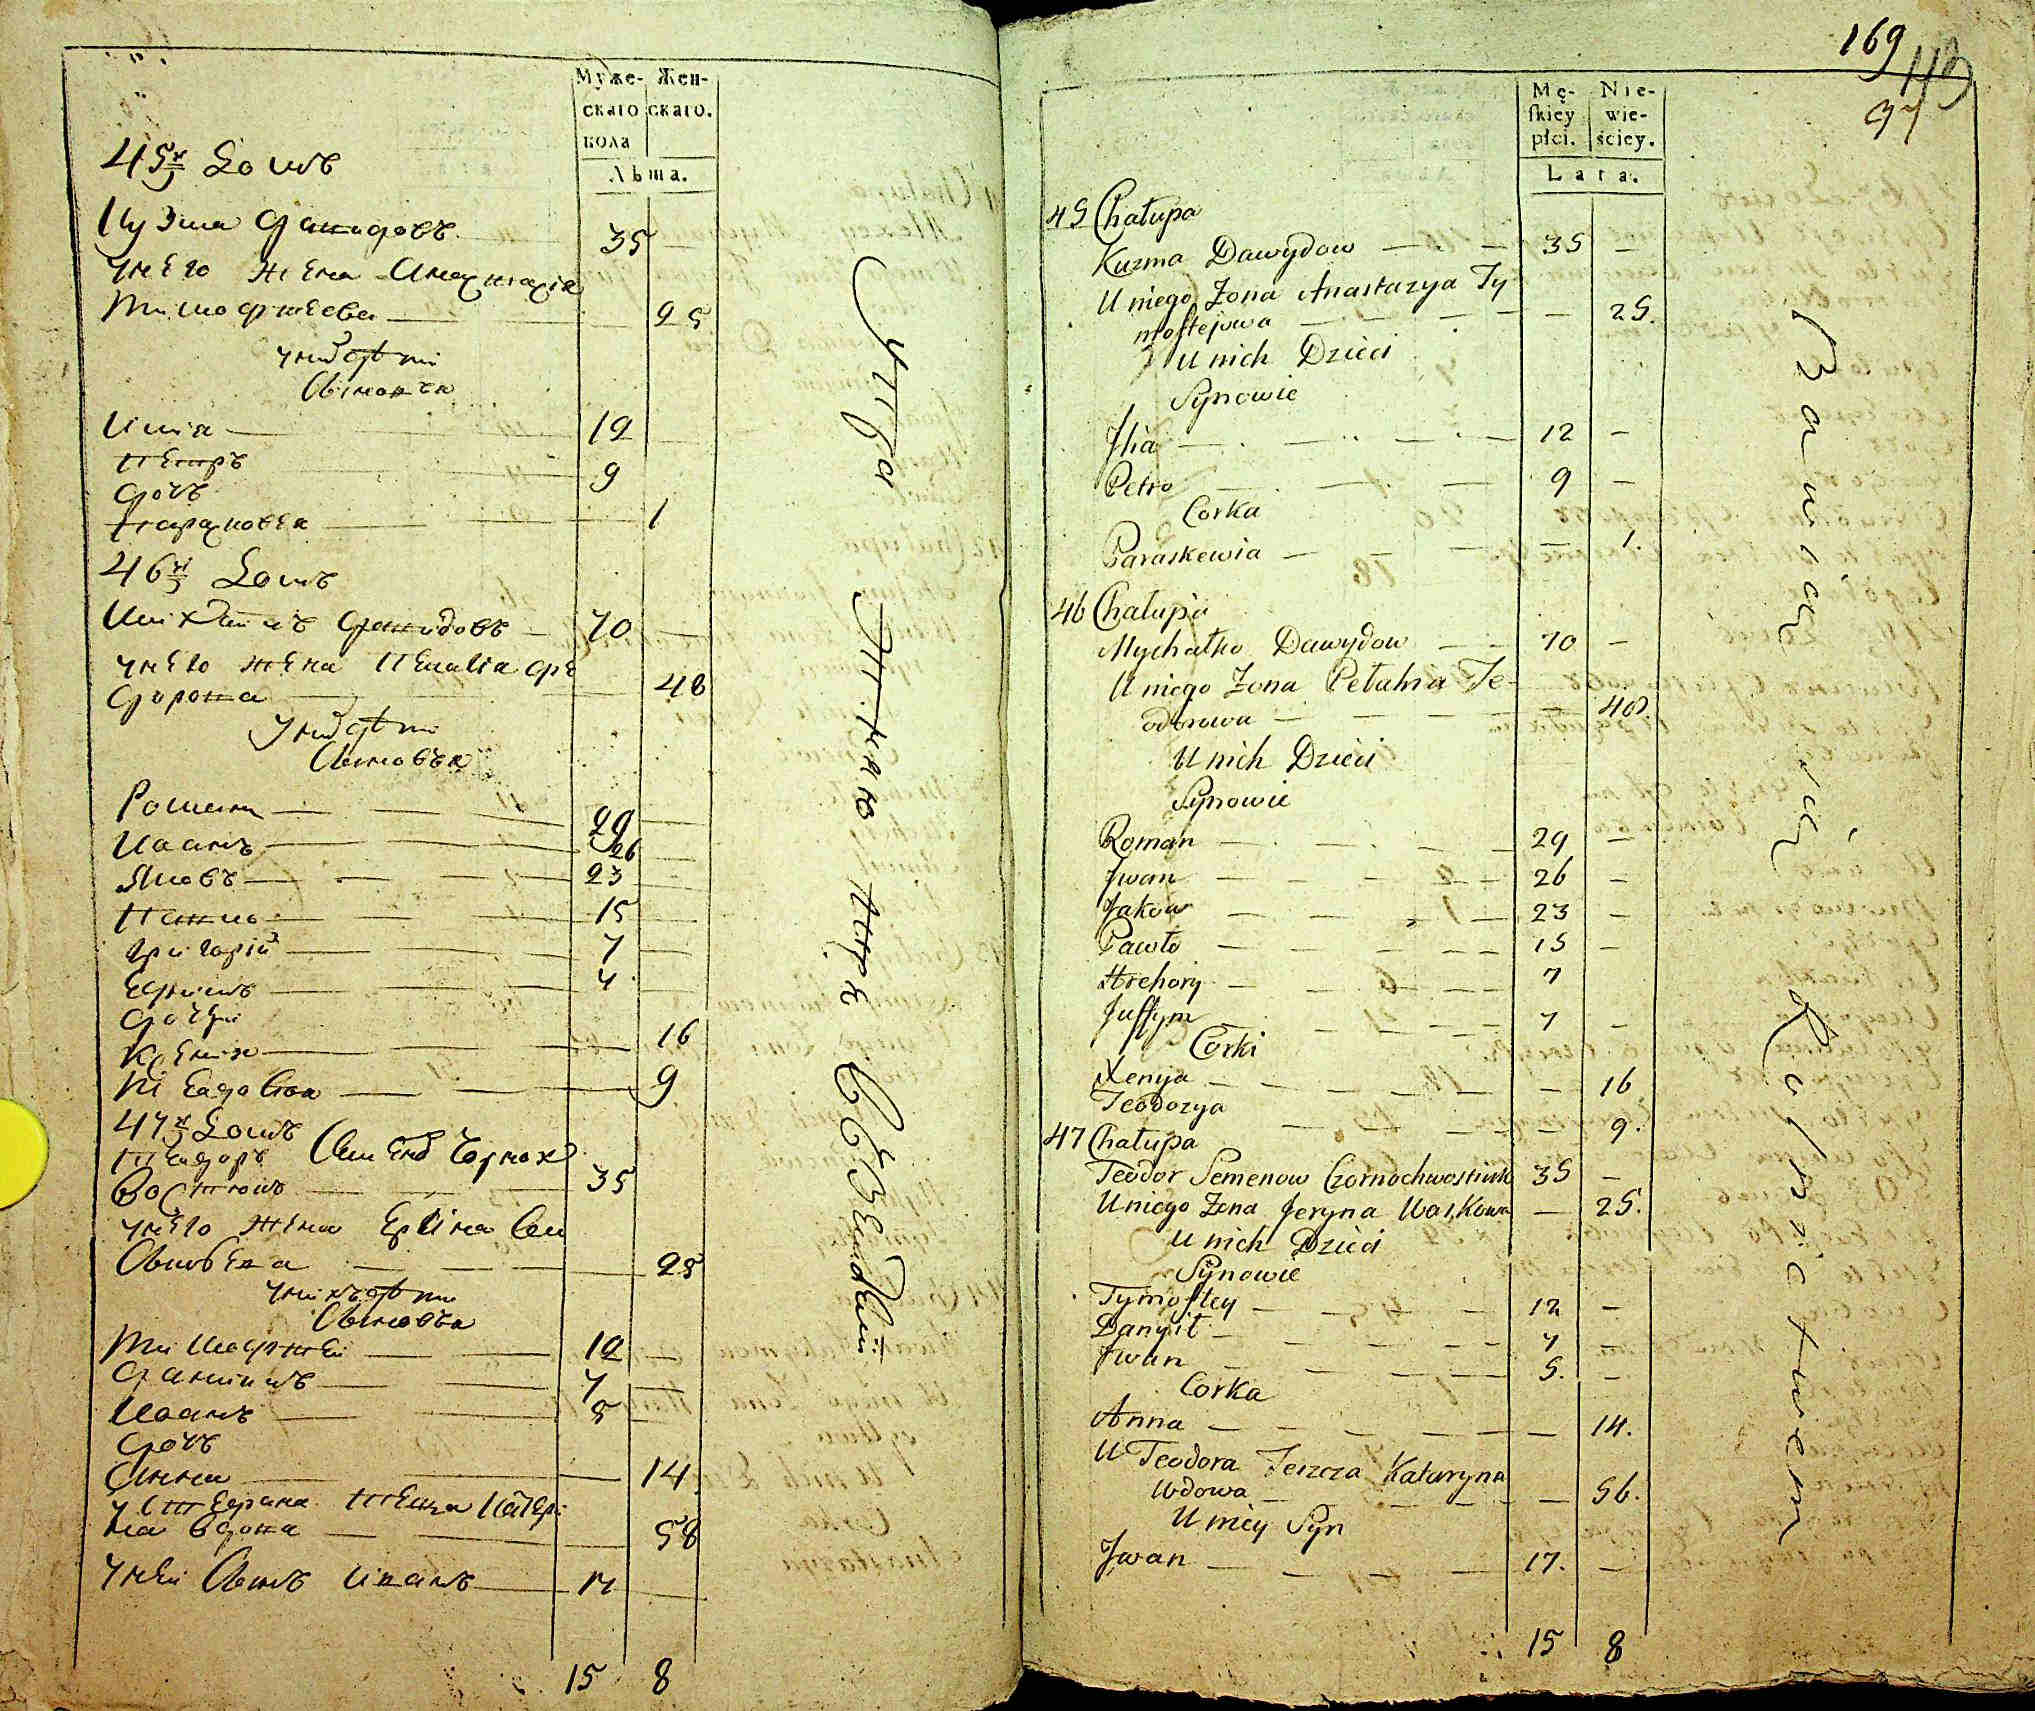 Муже-
Жен-
скаго
скаго.
пола
Лѣта.
45й Домъ
Кузма Давидовъ 35
У него жена Анастасія
Тимофѣева 25
У нихъ дѣти
Сыновья
Илія 12
Петръ 9
Дочь
Парасковея 1
46й Домъ
Михайло Давидовъ 70
У него жена Пелагія Фе
дорова 48
У нихъ дѣти
Сыновья
Романъ 29
Иванъ 26
Яковъ 23
Павло 15
Григорій 7
Ефимъ 4
Дочери
Ксенія 16
Феодосія 9
47й Домъ
Феодоръ Семеновъ Чорнох
востикъ 35
У него жена Ерина Ва
25
У нихъ дѣти
Сыновья
Тимофѣй 12
Данило 7
Иванъ 5
Дочь
Анна 14
У Феодора теща Катери
на вдова 58
У ней Сынъ Иванъ 17
15 8
169
Mę-
Nie-
skiey
wie-
płci.
ściey.
Lata.
45 Chałupa
Kuzma Dawydow — — 35 —
U niego Żona Anastazya Ty-
moftejowa — — — 25.
U nich Dzieci
Synowie
Jlia — — — 12 —
Petro — — 9 —
Corka
Paraskewia — — — — 1.
46 Chałupa
Mychałko Dawydow — — 70 —
U niego Żona Pełahia Te-
odorowa — — — — 48
U nich Dzieci
Synowie
Roman — — — 29 —
Jwan — — — 26 —
Jakow — — — 23 —
Pawło — — — 15 —
Hrehory — — — 7
Juffym — — — 7 —
Corki
Xenya — — — — 16
Teodozya — — — 9.
47 Chałupa
Teodor Semenow Czornochwostik 35 —
U niego Żona Jeryna Waskowa — 25.
U nich Dzieci
Synowie
Tymoftey — — — 12 —
Danyił — — — 7 —
Jwan — — — 5. —
Corka
Anna — — — — 14.
U Teodora Teszcza Kataryna
Wdowa — — — — 56.
U niey Syn
Jwan — — — 17. —
15 8